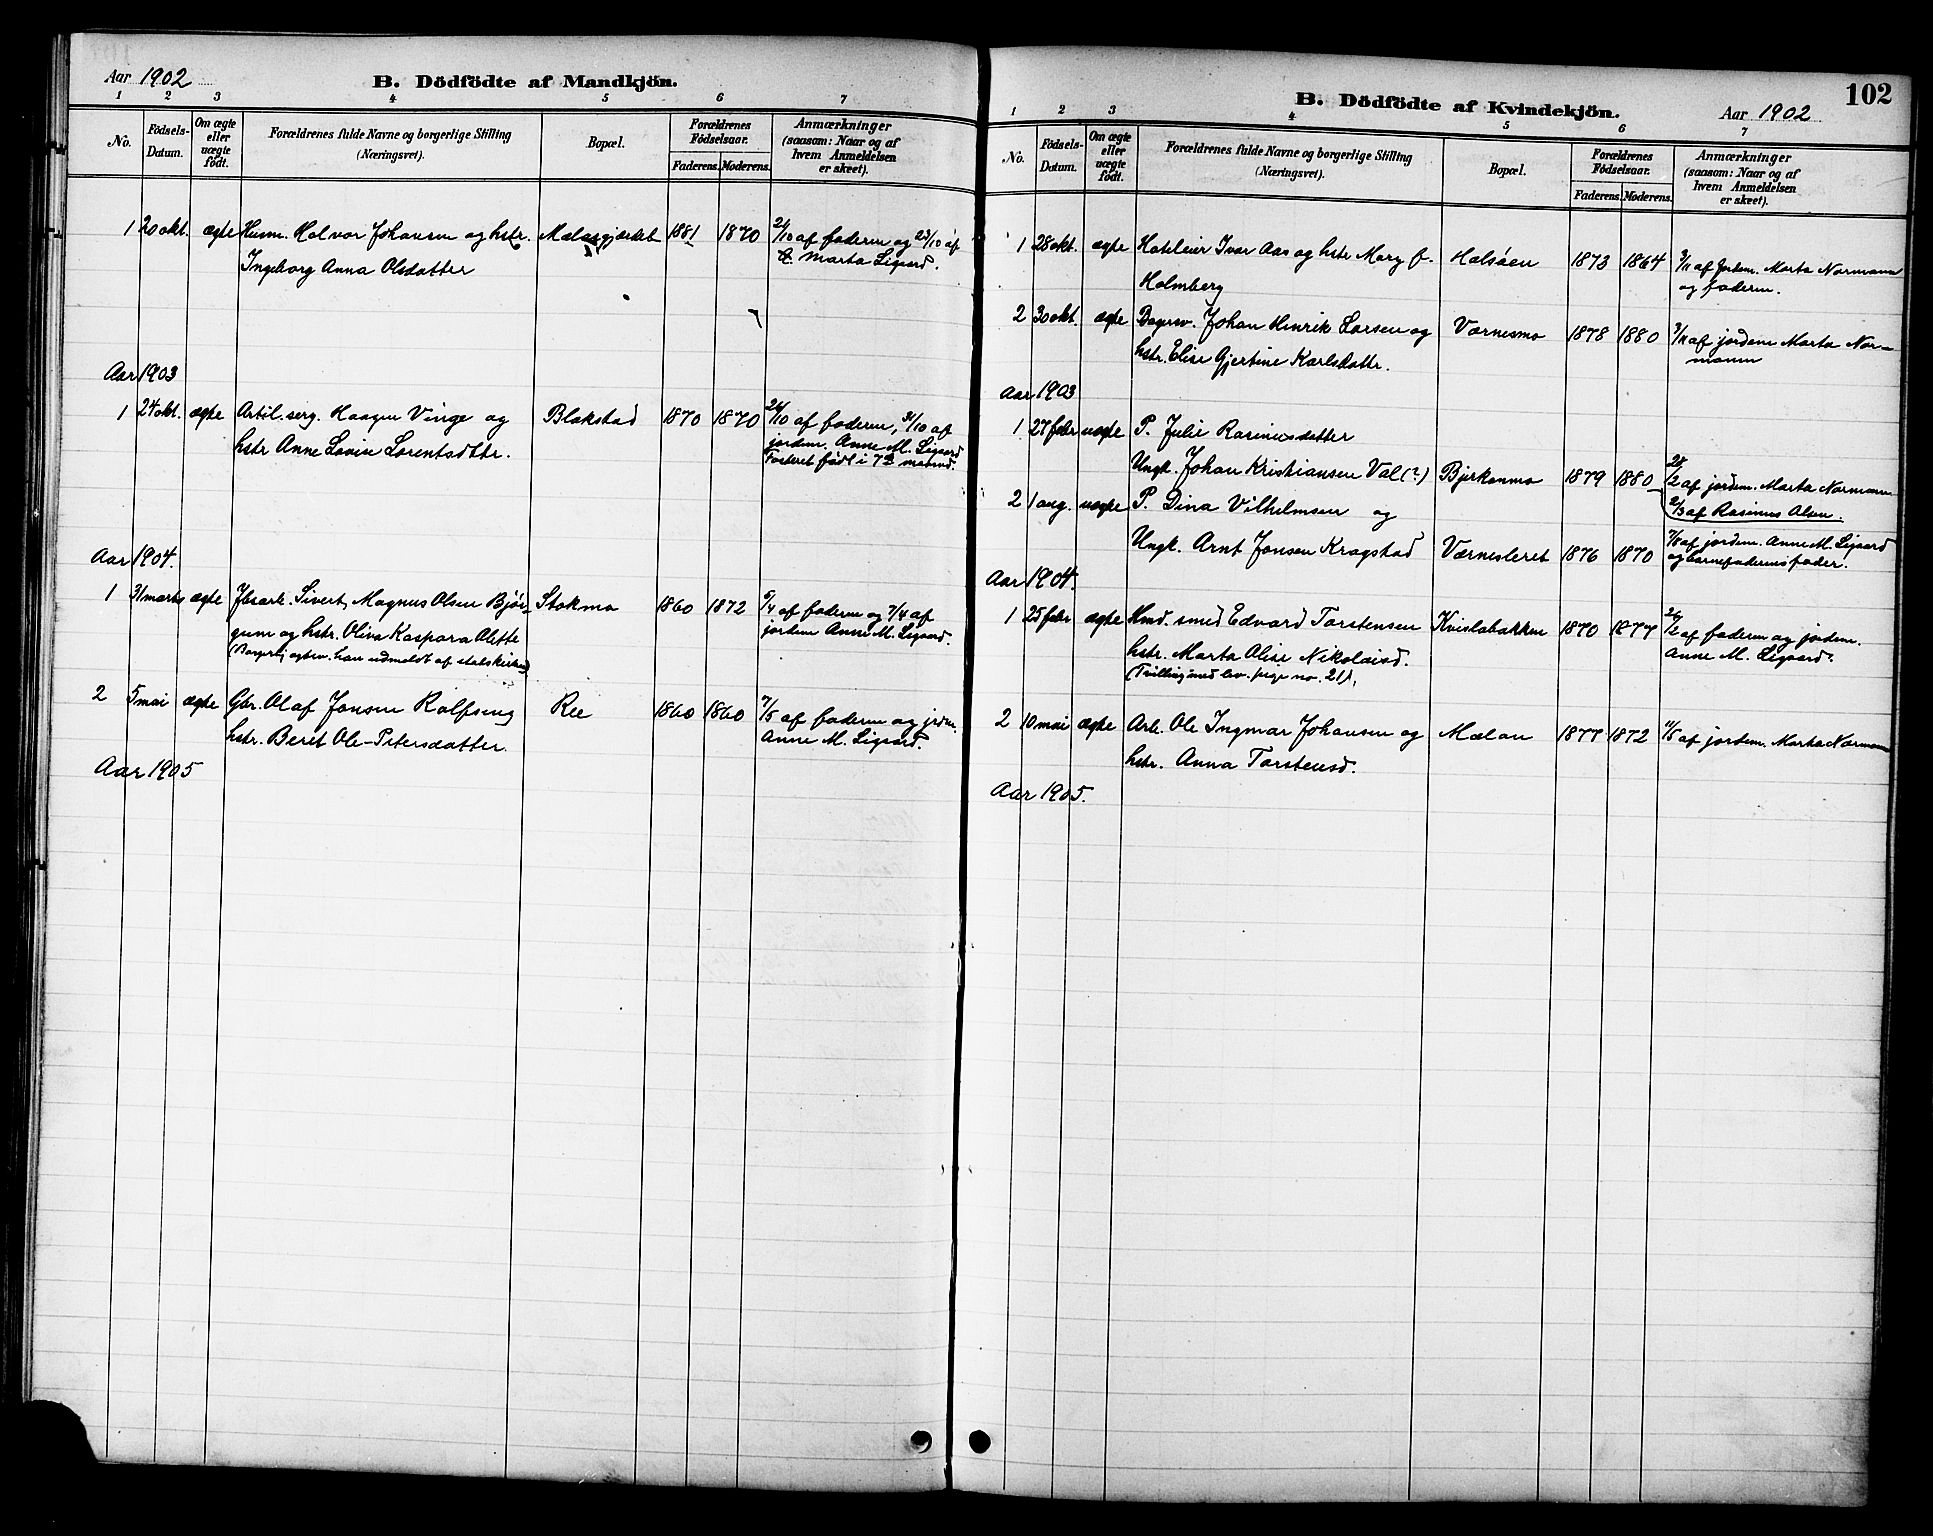 Aar 1902
B. Dödfödte af Mandkjön.
1 2 3 4 5 6 7
No.
Födsels-
Datum.
Om ægte
eller
uægte
födt.
Forældrenes fulde Navne og borgerlige Stilling
(Næringsvei).
Bopæl.
Forældrenes
Födselsaar.
Faderens. Moderens.
Anmærkninger
(saasom: Naar og af
hvem Anmeldelsen
er skeet).
1 20 okt. ægte Husm. Halvor Johansen og hstr. Mælasgjærdet 1881 1870 21/10 af faderen og 23/10 af
Ingeborg Anna Olsdatter Marta Ligaard.
Aar 1903
1 24 okt. ægte Artil. serg. Haagen Vinge og Blakstad 1870 1870 26/10 af faderen, 31/10 af
hstr Anne Lovise Lorentsdttr. jordem. Anne M. Ligaard
Fosteret født i 7de maaned.
Aar 1904.
1 31 marts ægte Jbsarb. Sivert Magnus Olsen Bjør- Stokmo 1860 1872 5/4 af faderen og 7/4 af
gum og hstr. Oliva Kaspara Alette jordem Anne M. Ligaard.
(Borgerlig egtev. han udmeldt af statskirken)
2 5 mai ægte Gbr. Olaf Jonsen Rolfseng Ree 1860 1860 7/5 af faderen og jordem.
hstr. Beret Ole-Petersdatter. Anne M. Ligaard.
Aar 1905
102
B. Dödfödte af Kvindekjön.
Aar 1902
1 2 3 4 5 6 7
No.
Födsels-
Datum.
Om ægte
eller
uægte
födt.
Forældrenes fulde Navne og borgerlige Stilling
(Næringsvei).
Bopæl.
Forældrenes
Födselsaar.
Faderens. Moderens.
Anmærkninger
(saasom: Naar og af
hvem Anmeldelsen
er skeet).
1 28 okt. ægte Hoteleier Ivar Aas og hstr Mary f. Halsøen 1873 1864 3/11 af Jordem. Marta Normann
Holmberg og faderen.
2 30 okt. ægte Bagersv. Johan Henrik Larsen og Værnesmo 1878 1880 3/11 af jordem Marta Nor-
hstr. Elise Gjertine Karlsdattr. mann
Aar 1903
1 27 febr uægte P. Julie Rasmusdatter
Ungk. Johan Kristiansen Val (?) Bjerkanmo 1879 1880 28/2 af jordem. Marta Normann
2/3 af Rasmus Olsen.
2 1 aug. uægte P. Dina Vilhelmsen og
Ungk. Arnt Jonsen Kragstad Værnesleret 1876 1870 7/8 af jordem. Anne M. Ligaard
og barnefaderens fader.
Aar 1904.
1 25 febr ægte Hmd. smed Edvard Torstensen Kvislabakken 1870 1877 26/2 af faderen og jordem.
hstr. Marta Olise Nikolaisd. Anne M. Ligaard.
(Tvilling med lev. pige no. 21).
2 10 mai ægte Arb. Ole Ingmar Johansen og Mælan 1877 1872 11/5 af jordem. Marta Normann
hstr. Anna Torstensd.
Aar 1905.